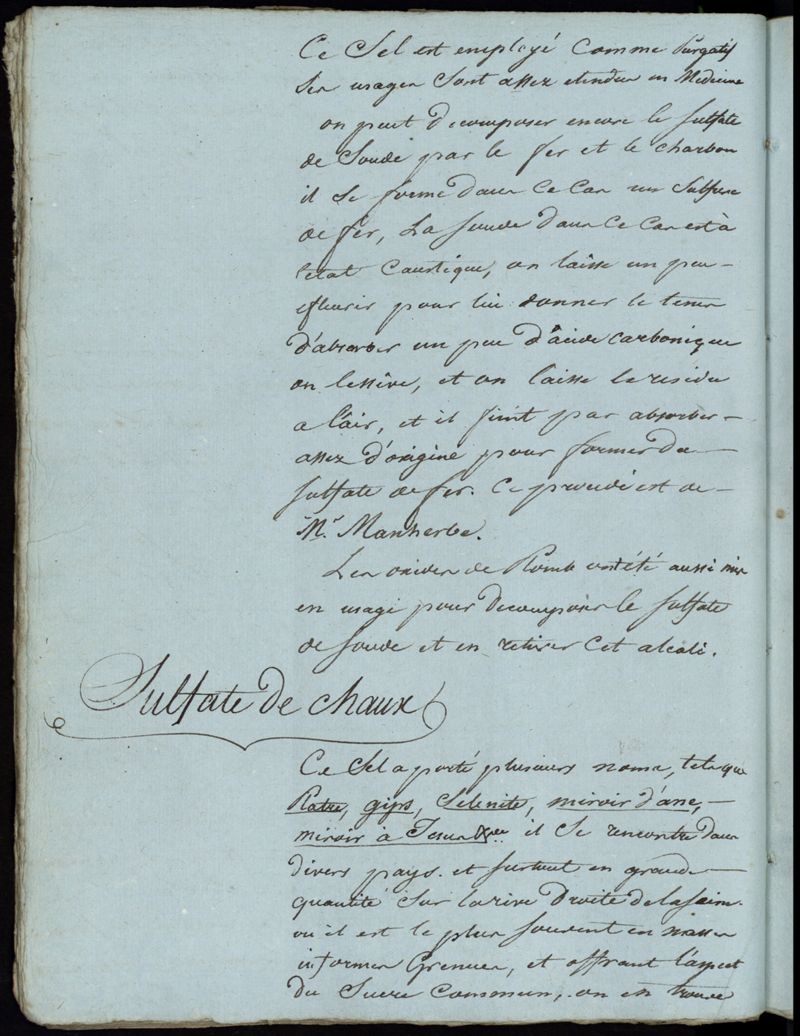 Ce Sel est employé Comme Purgatif
Ses usages Sont assez etendus en Medecine
on peut Decomposer encore le Sulfate
de Soude par le fer et le charbon
il se forme dans Ce Cas un Sulfure
de fer, La soude dans Ce Cas est à
l'etat Caustique, on laisse un peu
efleurir pour lui donner le tems
d'absorber un peu d'acide carbonique
on lessive, et on laisse le residu
a l'air, et il finit par absorber
assez d'oxigine pour former du
sulfate de fer. Ce procedé est de
Mr. Manherbe.
Les oxides de Plomb ont été aussi mis
en usage pour Decomposer le sulfate
de soude et en retirer Cet alcali.
Sulfate De chaux
Ce Sel a porté plusieurs noms, tels que
Platre, gips, Selenite, miroir d'ane,
miroir à Jesus il se rencontre dans
divers pays. et surtout en grande
quantité sur la rive Droite de la Seine
ou il est le plus souvent en masses
informes Grenues, et offrant l'aspect
du Sucre Commun, on en trouve